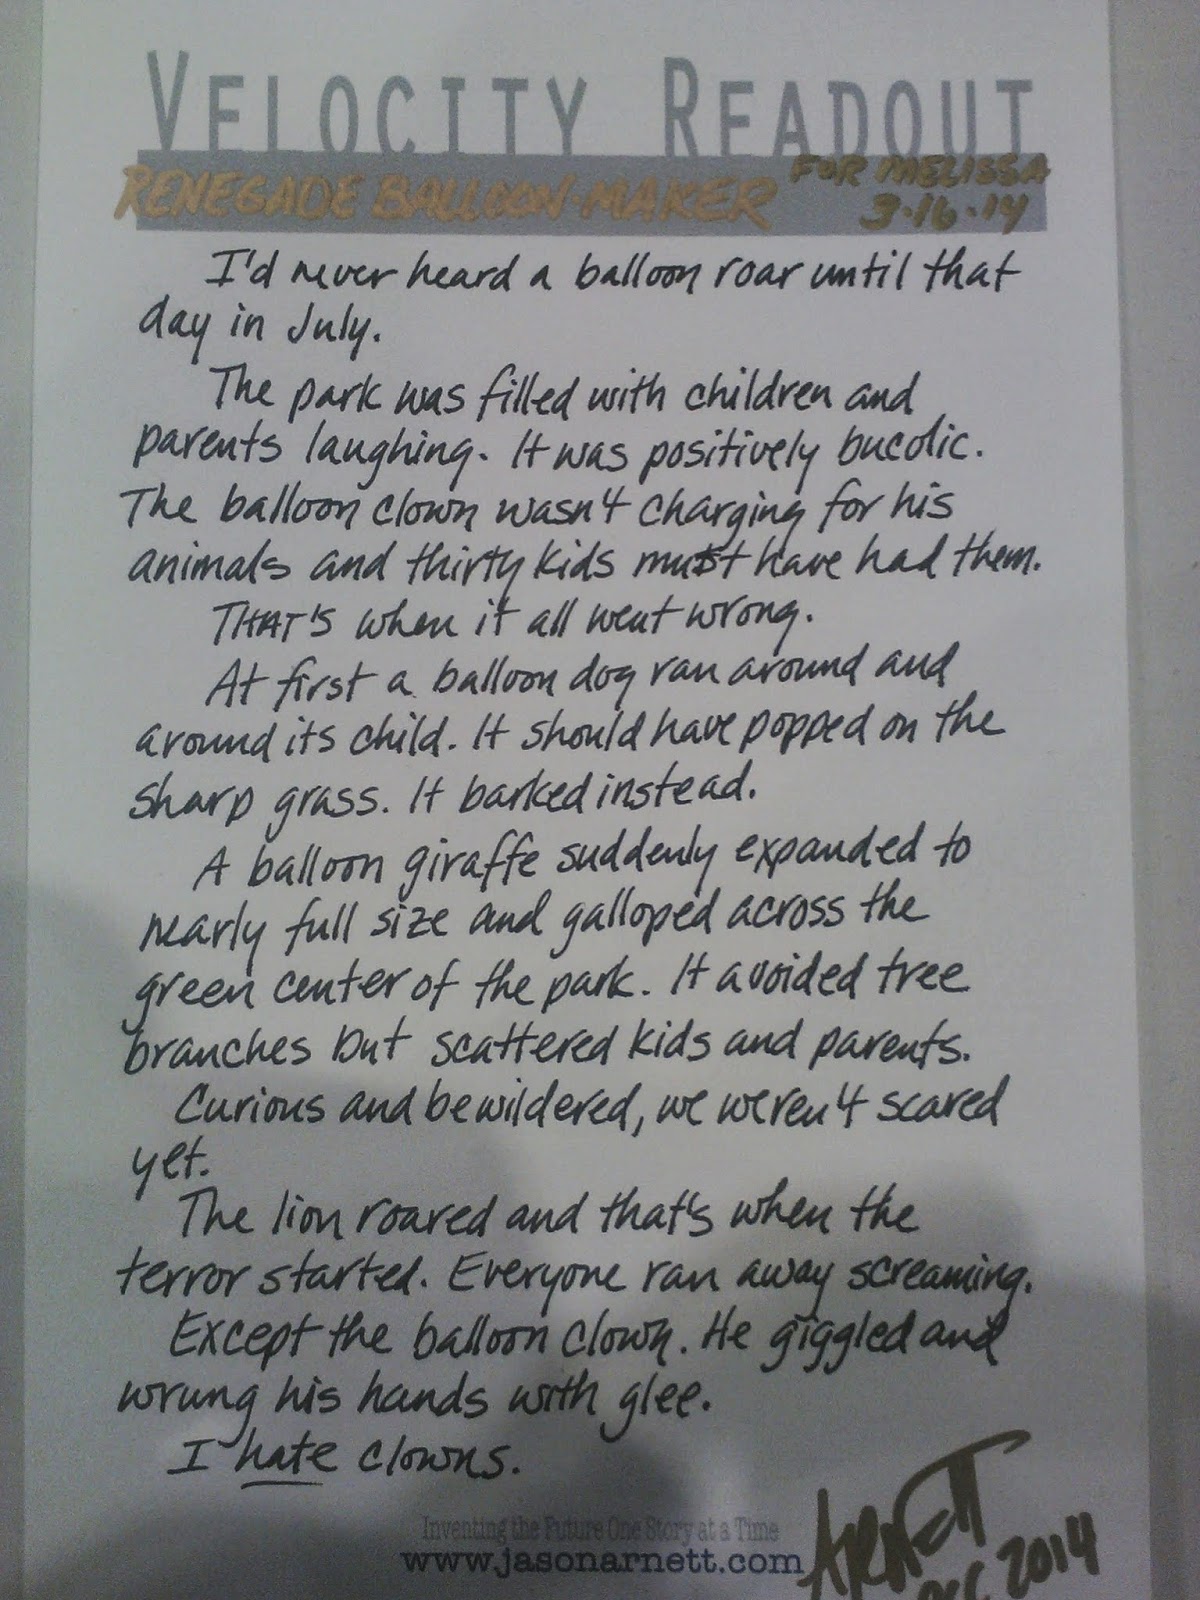 VELOCITY READOUT
RENEGADE BALLOON-MAKER
FOR MELISSA
3·16·14
I'd never heard a balloon roar until that
day in July.
The park was filled with children and
parents laughing. It was positively bucolic.
The balloon clown wasn't charging for his
animals and thirty kids must have had them.
THAT'S when it all went wrong.
At first a balloon dog ran around and
around its child. It should have popped on the
sharp grass. It barked instead.
A balloon giraffe suddenly expanded to
nearly full size and galloped across the
green center of the park. It avoided tree
branches but scattered kids and parents.
Curious and bewildered, we weren't scared
yet.
The lion roared and that's when the
terror started. Everyone ran away screaming.
Except the balloon clown. He giggled and
wrung his hands with glee.
I hate clowns.
Inventing the Future One Story at a Time
www.jasonarnett.com
ARNETT
2014